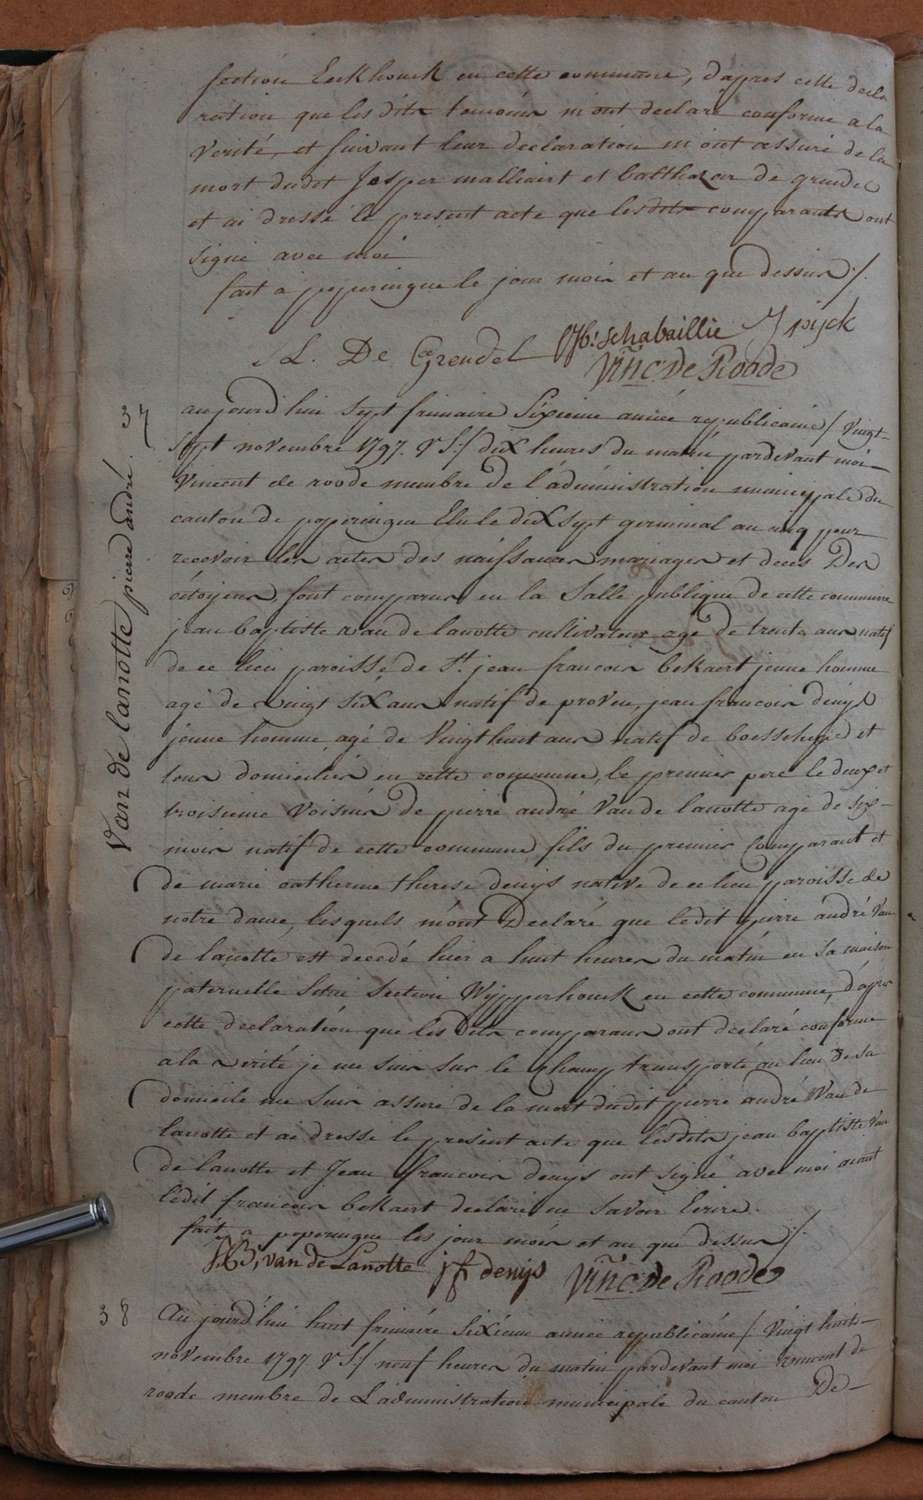 section Eeckhouck en cette commune, d'apres cette decla
ration que lesdits temoins m'ont declaré conforme a la
verité, et suivant leur declaration m'ont assuré de la
mort dudit Jasper malliaert et balthazar de grendel
et ai dressé le present acte que lesdits comparants ont
signé avec moi
fait a poperingue le jour mois et an que dessus ./.
L. De Grendel J Spijck
Schabaillie Vinc. De Roode
37
Van de lanotte pierre andré
aujourd'hui sept frimaire sixieme année republicaine / vingt-
sept novembre 1797. v S./ dix heures du matin pardevant moi
Vincent de roode membre de l'administration municipale du
canton de poperingue Elu le dix sept germinal an cinq pour
recevoir les actes des naissances mariages et deces Des
citoyens sont comparus en la Salle publique de cette commune
jean baptiste van de lanotte cultivateur agé de trente ans natif
de ce lieu paroisse de St. jean francois bekaert jeune homme
agé de vingt six ans natif de proven, jean francois denijs
jeune homme agé de vingt huit ans natif de boesschepe et
tous domiciliés en cette commune, le premier pere le deux et
troisieme voisins de pierre andré van de lanotte agé de six-
mois natif de cette commune fils du premier comparant et
de marie catherine therese denijs native de ce lieu paroisse de
notre dame, lesquels m'ont Declaré que ledit pierre andré van
de lanotte est decedé hier a huit heures du matin en sa maison
paternelle scitué section Wipperhouck en cette commune, d'apres
cette declaration que lesdits comparans ont declaré conforme
a la verité je me suis sur le champ transporté au lieu de sa
domicile me suis assuré de la mort dudit pierre andré Van de
lanotte et ai dressé le present acte que lesdits jean baptiste van
de lanotte et Jean francois denijs ont signé avec moi aiant
ledit francois bekaert declaré ne savoir Ecrire.
fait a poperingue les jour mois et an que dessus ./.
J B, van de Lanotte j f denijs Vinc. De Roode
38 Au jourd'hui huit frimaire sixieme année republicaine / vingt huit-
novembre 1797 v S./ neuf heures du matin pardevant moi vincent de
roode membre de L'administration municipale du canton De-